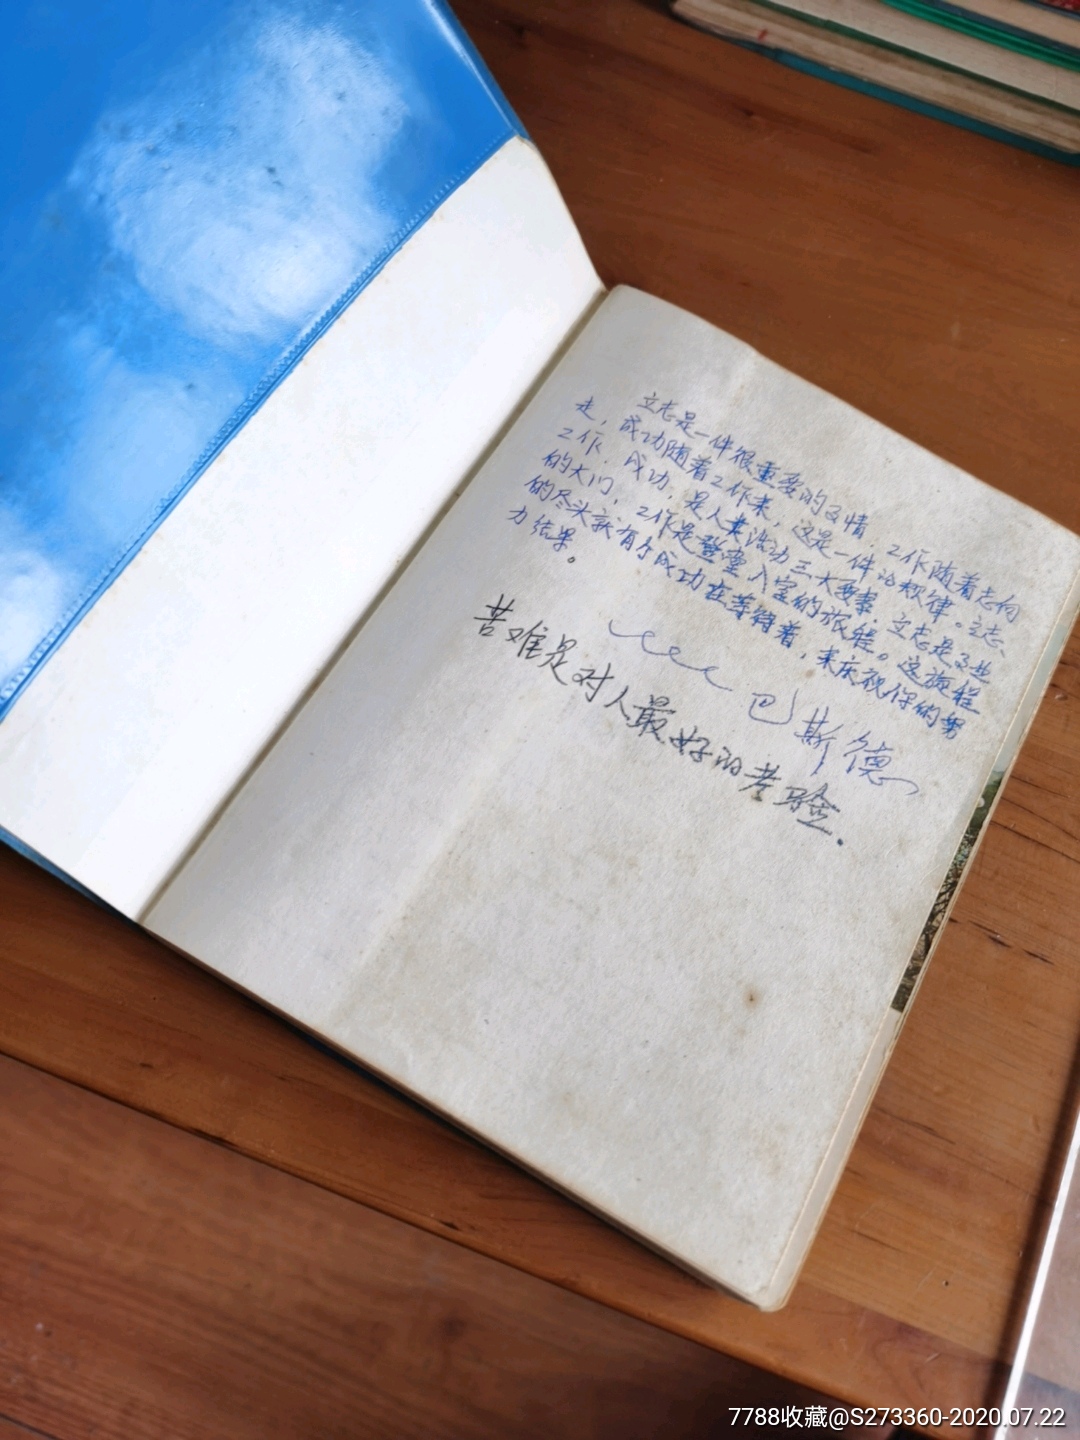 立志是一件很重要的事情。工作随着志向
走，成功随着工作来，这是一件的规律。立志、
工作、成功，是人类活动三大要素。立志是事业
的大门，工作是登堂入室的旅程。这旅程
的尽头就有个成功在等待着，来庆祝你的努
力结果。
巴斯德
苦难是对人最好的考验.
7788收藏@S273360-2020.07.22